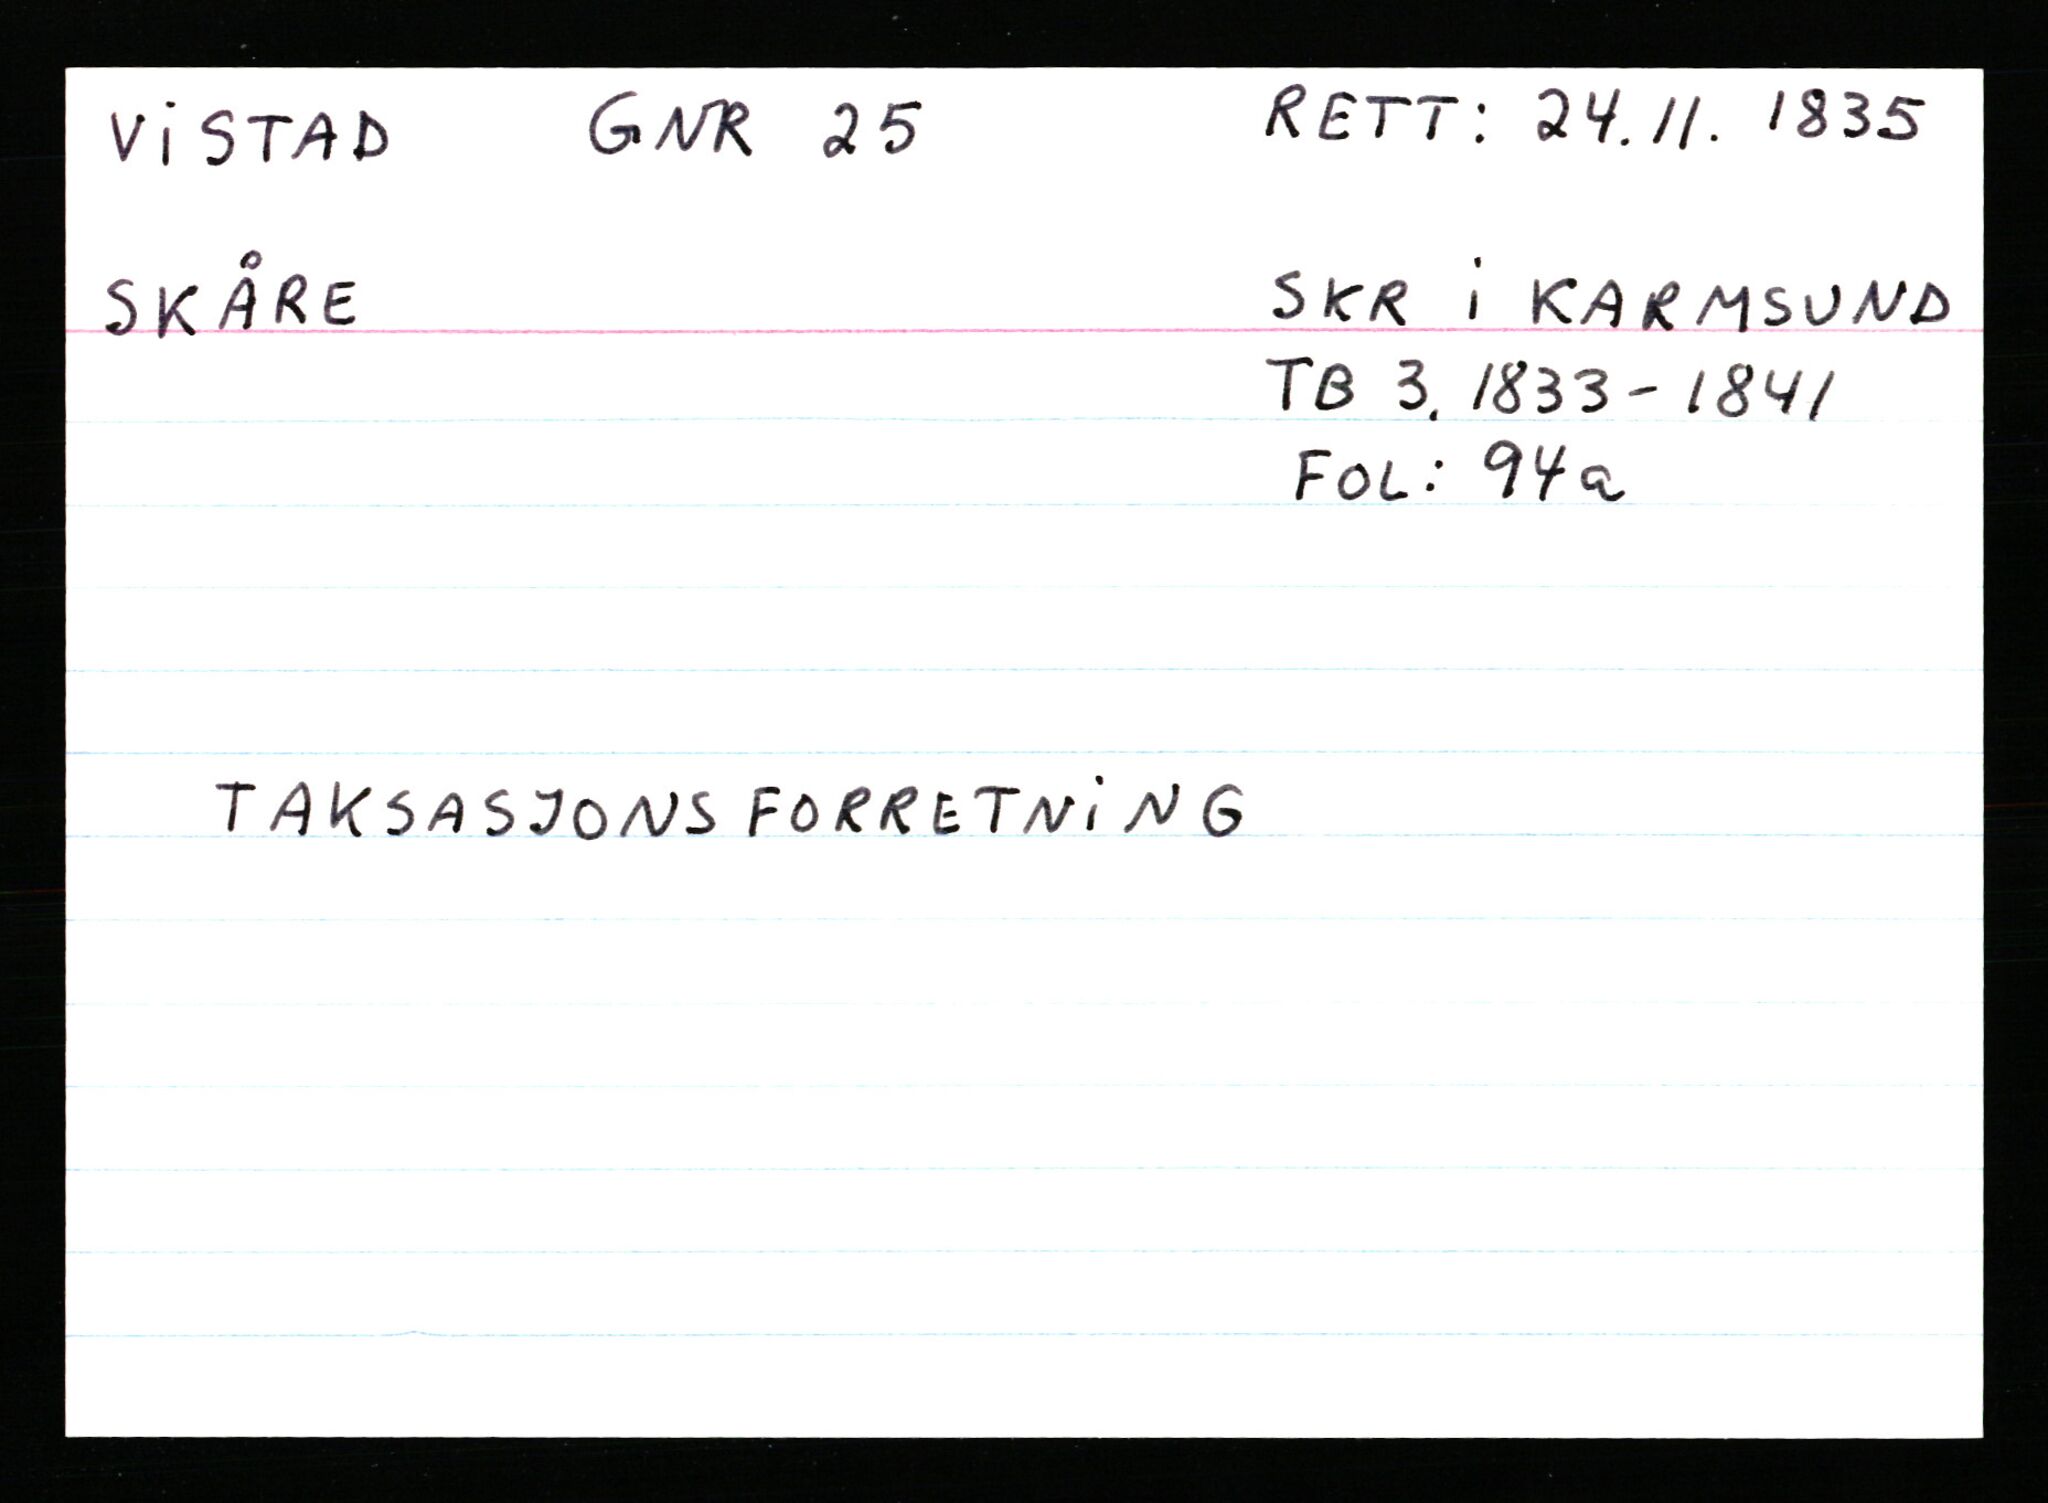 ViSTAD GNR 25 RETT: 24.11. 1835
SKÅRE SKR i KARMSUND
TB 3. 1833-1841
FOL: 94a
TAKSASJONSFORRETNiNG